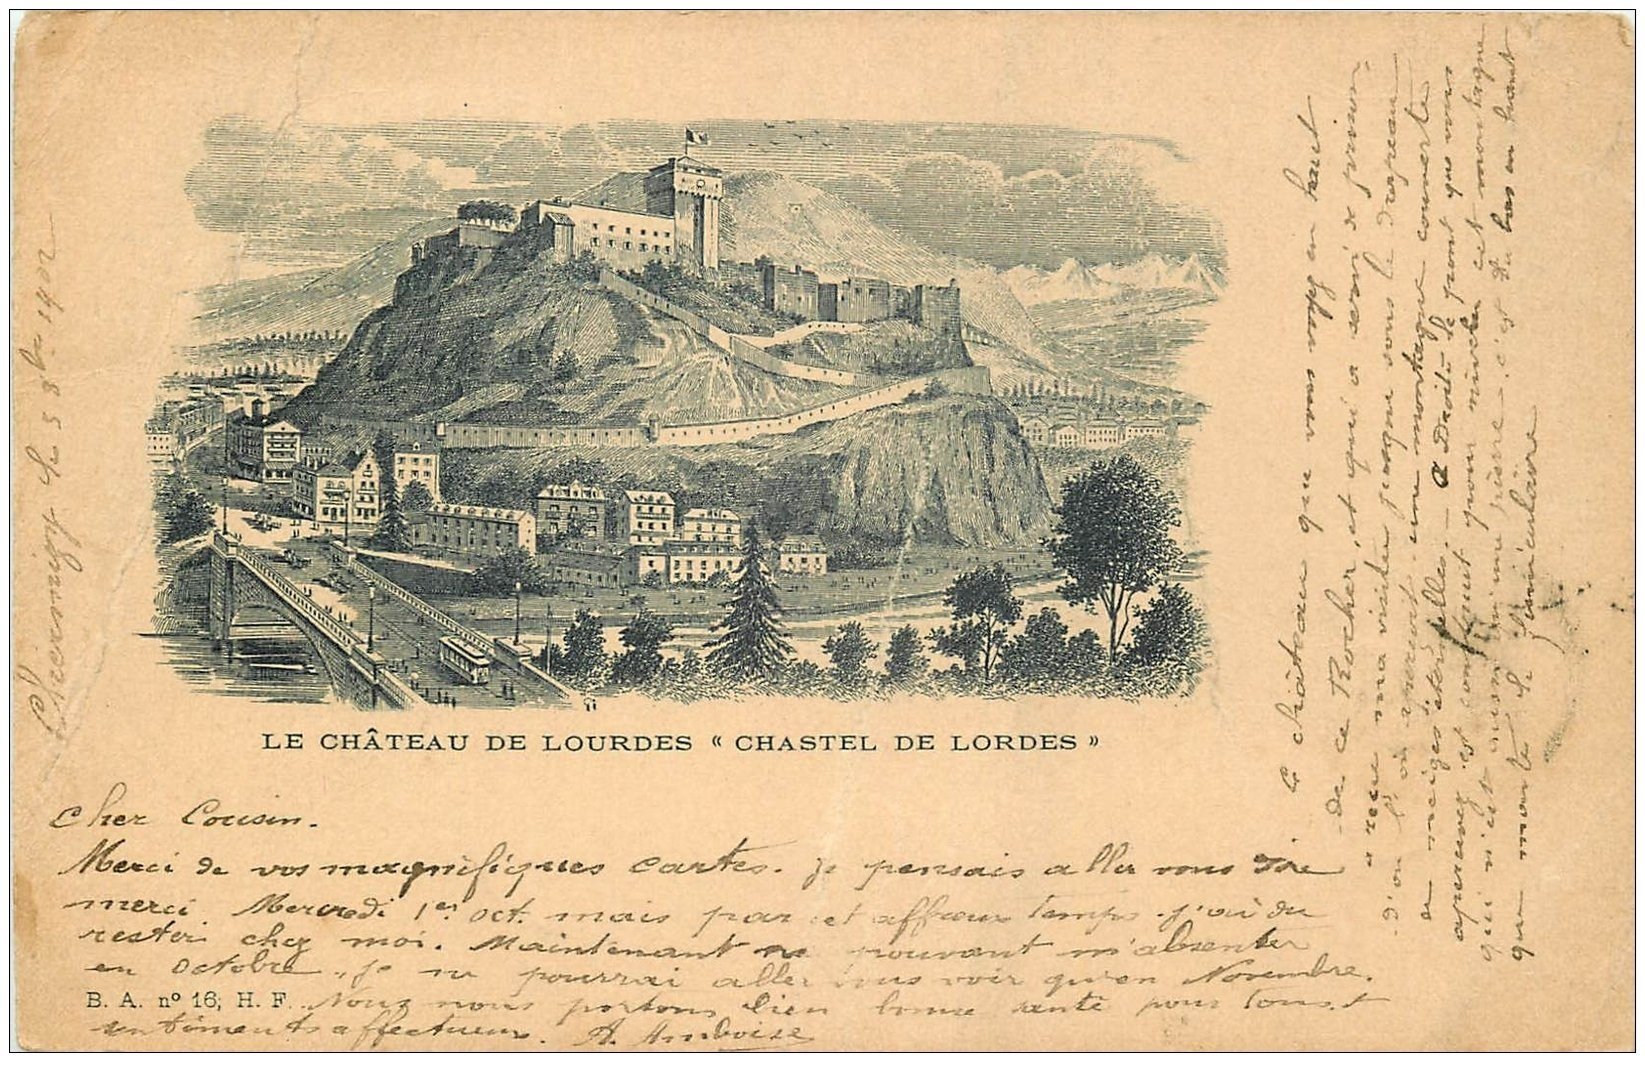 LE CHÂTEAU DE LOURDES « CHASTEL DE LORDES »
Cher Cousin.
Merci de vos magnifiques cartes. Je pensais aller vous dire
merci Mercredi 1er oct. mais par cet affreux temps j'ai du
rester chez moi. Maintenant ne pouvant m'absenter
en Octobre, Je ne pourrai aller vous voir qu'en Novembre.
B. A. nº 16; H. F. Nous nous portons bien bonne santé pour tous. &
sentiments affectueux. A. Amboise
le 3 8bre 1902
Le château que vous voyez en haut
de ce Rocher, et qui a servi de prison,
a reçu ma visite jusque sous le drapeau
d'où l'on aperçoit une montagne couverte
de neiges éternelles. – A Droite le pont que vous
apercevez est conséquent pour niveler cet montagne
qui n'est aussi qu'une pierre. c'est du bas en haut
que monte le funiculaire